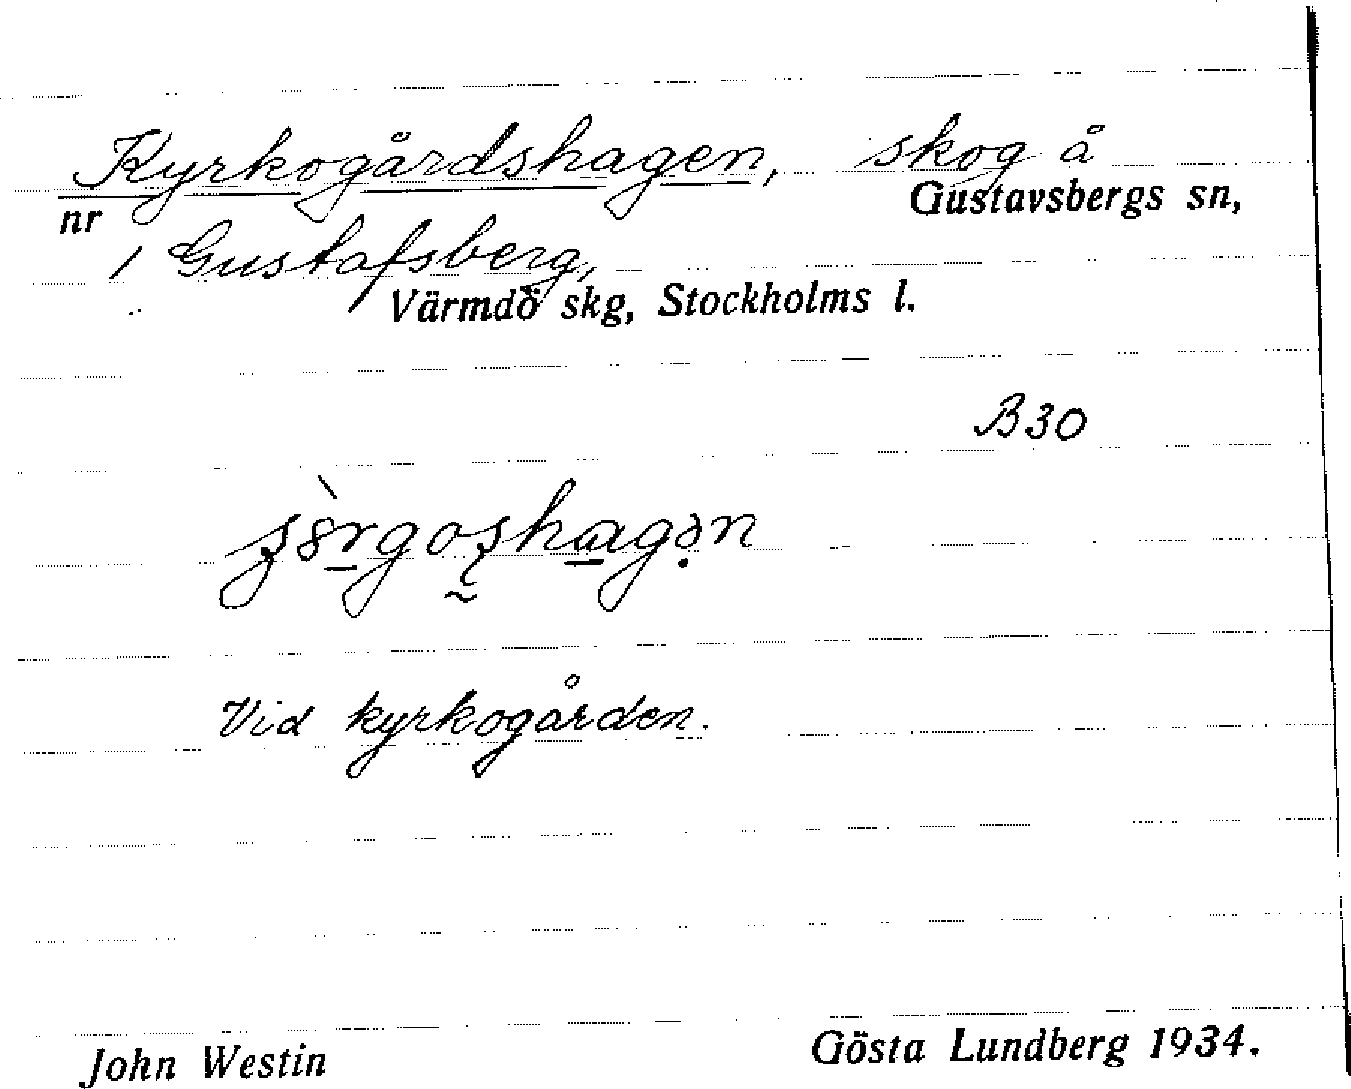 Kyrkogårdshagen, skog å
Gustavsbergs sn,
nr
1 Gustafsberg,
Värmdö skg, Stockholms l.
B30
Vid kyrkogården.
John Westin
Gösta Lundberg 1934.